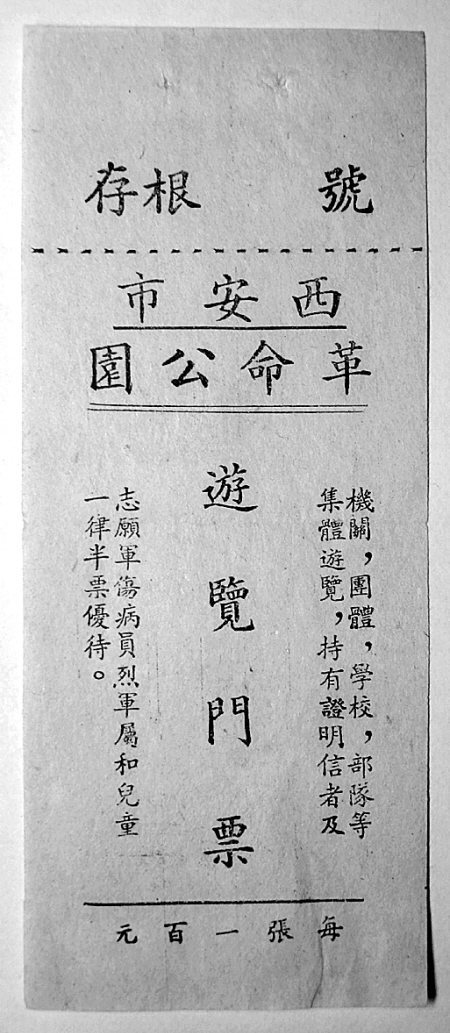 號 根存
西安市
革命公園
遊覽門票
機關，團體，學校，部隊等
集體遊覽，持有證明信者及
志願軍傷病員烈軍屬和兒童
一律半票優待。
每張一百元